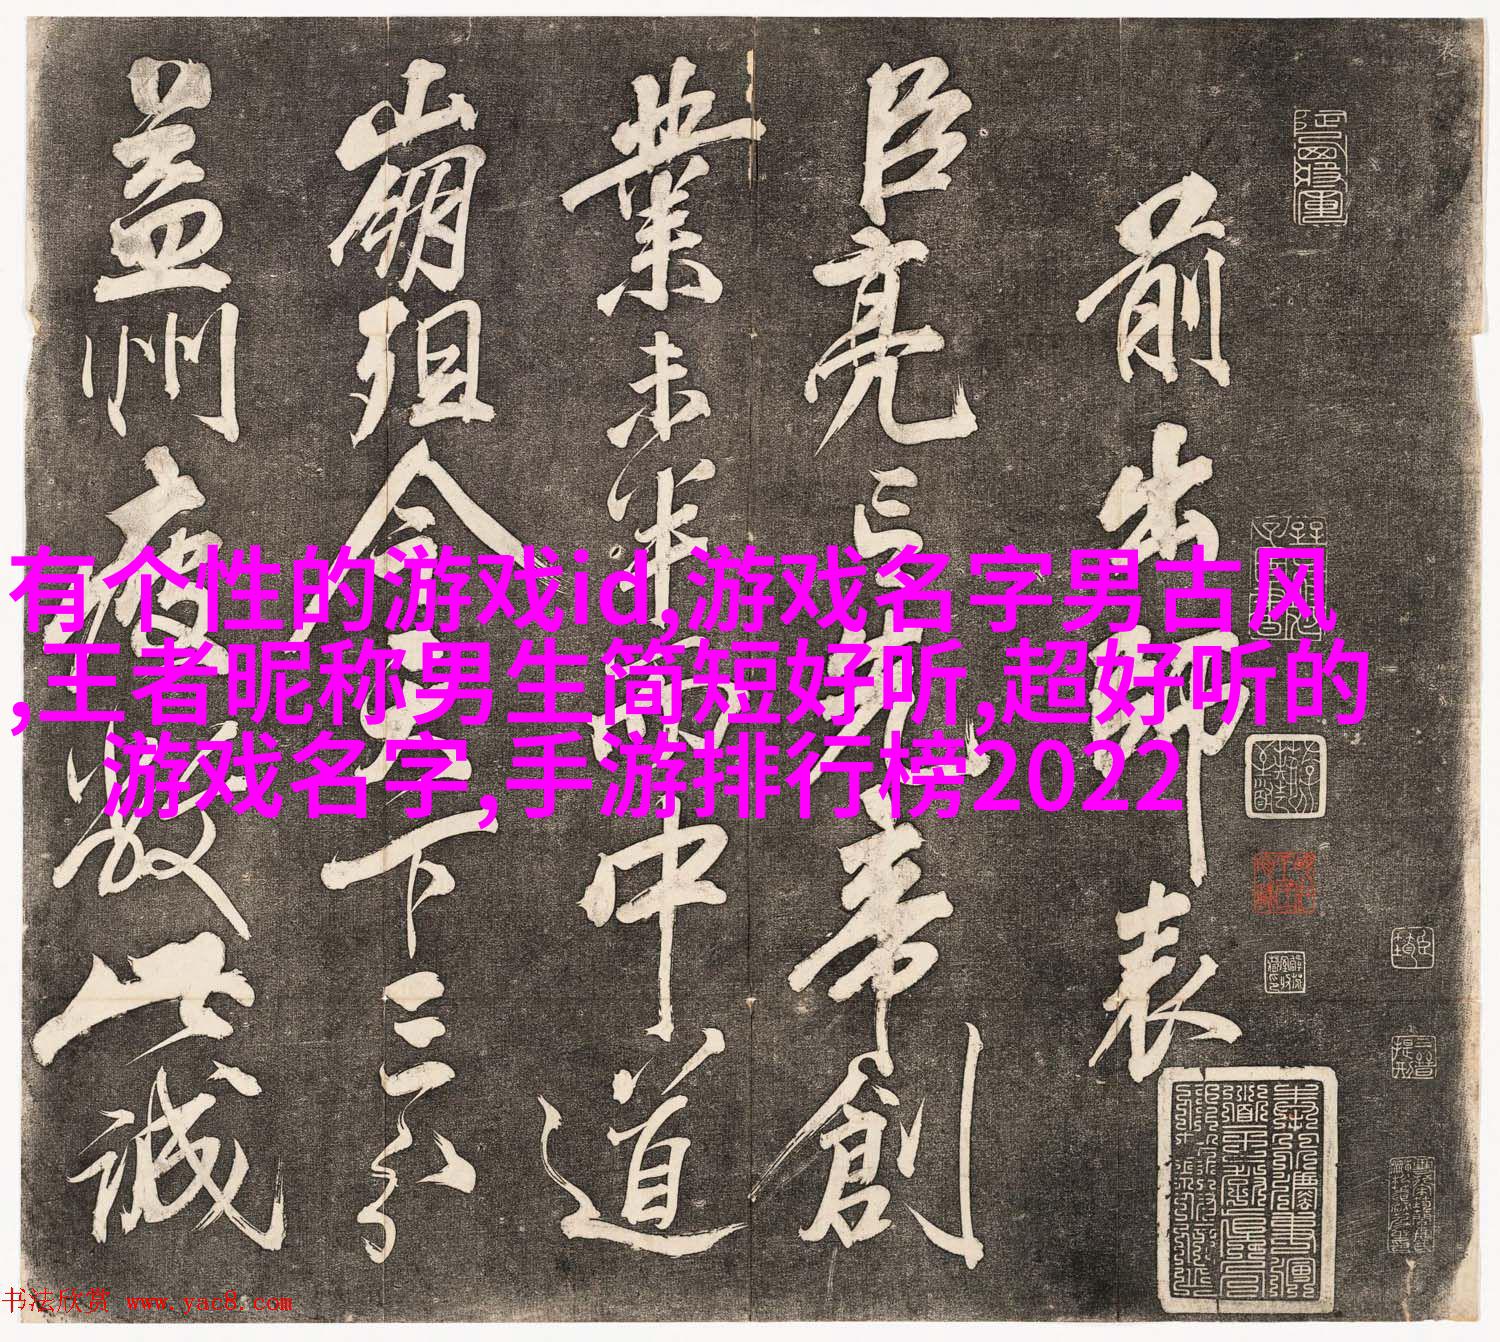 前出師表
臣亮言先帝創
業未半而中道
崩殂今天下三分
益州疲敝此誠
有个性的游戏id,游戏名字男古风
,王者昵称男生简短好听,超好听的
游戏名字,手游排行榜2022
三晉提刑
书法欣赏 www.yac8.com